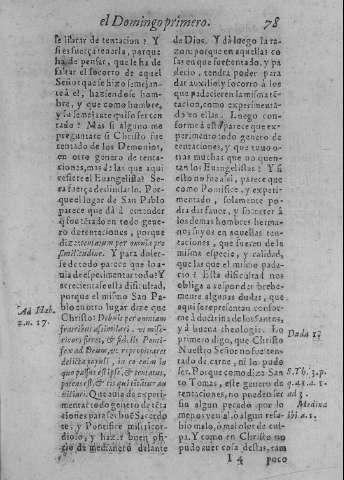 el Domingo primero. 78
se librar de tentacion? Y
si es fuerça tenerla, porque
ha de pensar, que le ha de
faltar el socorro de aquel
Señor que se hizo semejan-
te à el, haziendose hom-
bre, y que como hombre,
y su semejante quiso ser ten
tado? Mas si alguno me
preguntare si Christo fue
tentado de los Demonios,
en otro genero de tenta-
ziones, mas de las que aqui
refiere el Euangelista? Se
ra fuerça desdimirlo. Por-
que el lugar de San Pablo
parece que dà à entender
q̃ fue tentado en todo gene-
ro de tentaciones, porque
diz
similitudine. Y para doler-
se de todo parece que lo a-
uia de esperimentar todo? Y
acrecientase esta dificultad,
porque el mismo San Pa-
blo en otro lugar dize que
Christo: Debuit per omnia
fratribus assimilari. ut mise-
ricors fieret, & fidelis Ponti-
fex ad Deum, ut repropitiaret
delicta populi, in eo enim in
quo passus est ipse, & tentatus,
potens est, & eis qui tentantur au
xiliari. Que auia de esperi-
mentar todo genero de tẽta
ciones para ser buẽ Sacerdo
te, y Pontifice misericor-
dioso, y hazer buen ofi-
cio de medianero delante
Ad Heb.
2. n. 17.
de Dios. Y dà luego la ra-
zon: porque en aquellas co-
sas en que fue tentado, y pa
decio, tendra poder para
dar auxilio, y socorro à los
que padecieren la misma tẽ-
tacion, como experimenta-
do en ellas. Luego con-
forme à esto parece que ex-
perimento todo genero de
tentaciones, y que tuuo o-
tras muchas que no quen-
tan los Euangelistas? Y si
esto no fue assi, parece que
como Pontifice, y experi-
mentado, solamente po-
dra dar fauor, y socorrer à
los demas hombres herma-
nos suyos en aquellas ten-
taciones, que fueren de la
misma especie, y calidad,
que las que el mismo pade-
cio? Esta dificultad nos
obliga a responder breue-
mente algunas dudas, que
aqui se representan confor-
me à doctrina de los Santos,
y à buena theologia. Lo
primero digo, que Christo
Nuestro Señor no fue ten-
tado de carne, ni lo pudo
ser. Porque como dize San
to Tomas, este genero de
tentaciones, no pueden ser
sin algun pecado por lo
menos venial, ò algun resa-
bio malo, ò mal olor de cul-
pa. Y como en Christo no
pudo auer cosa destas, tam
Duda 1ª
S. Th. 3. p.
q. 41. a. 1.
Medina
ibi a. 1.
I 4 poco